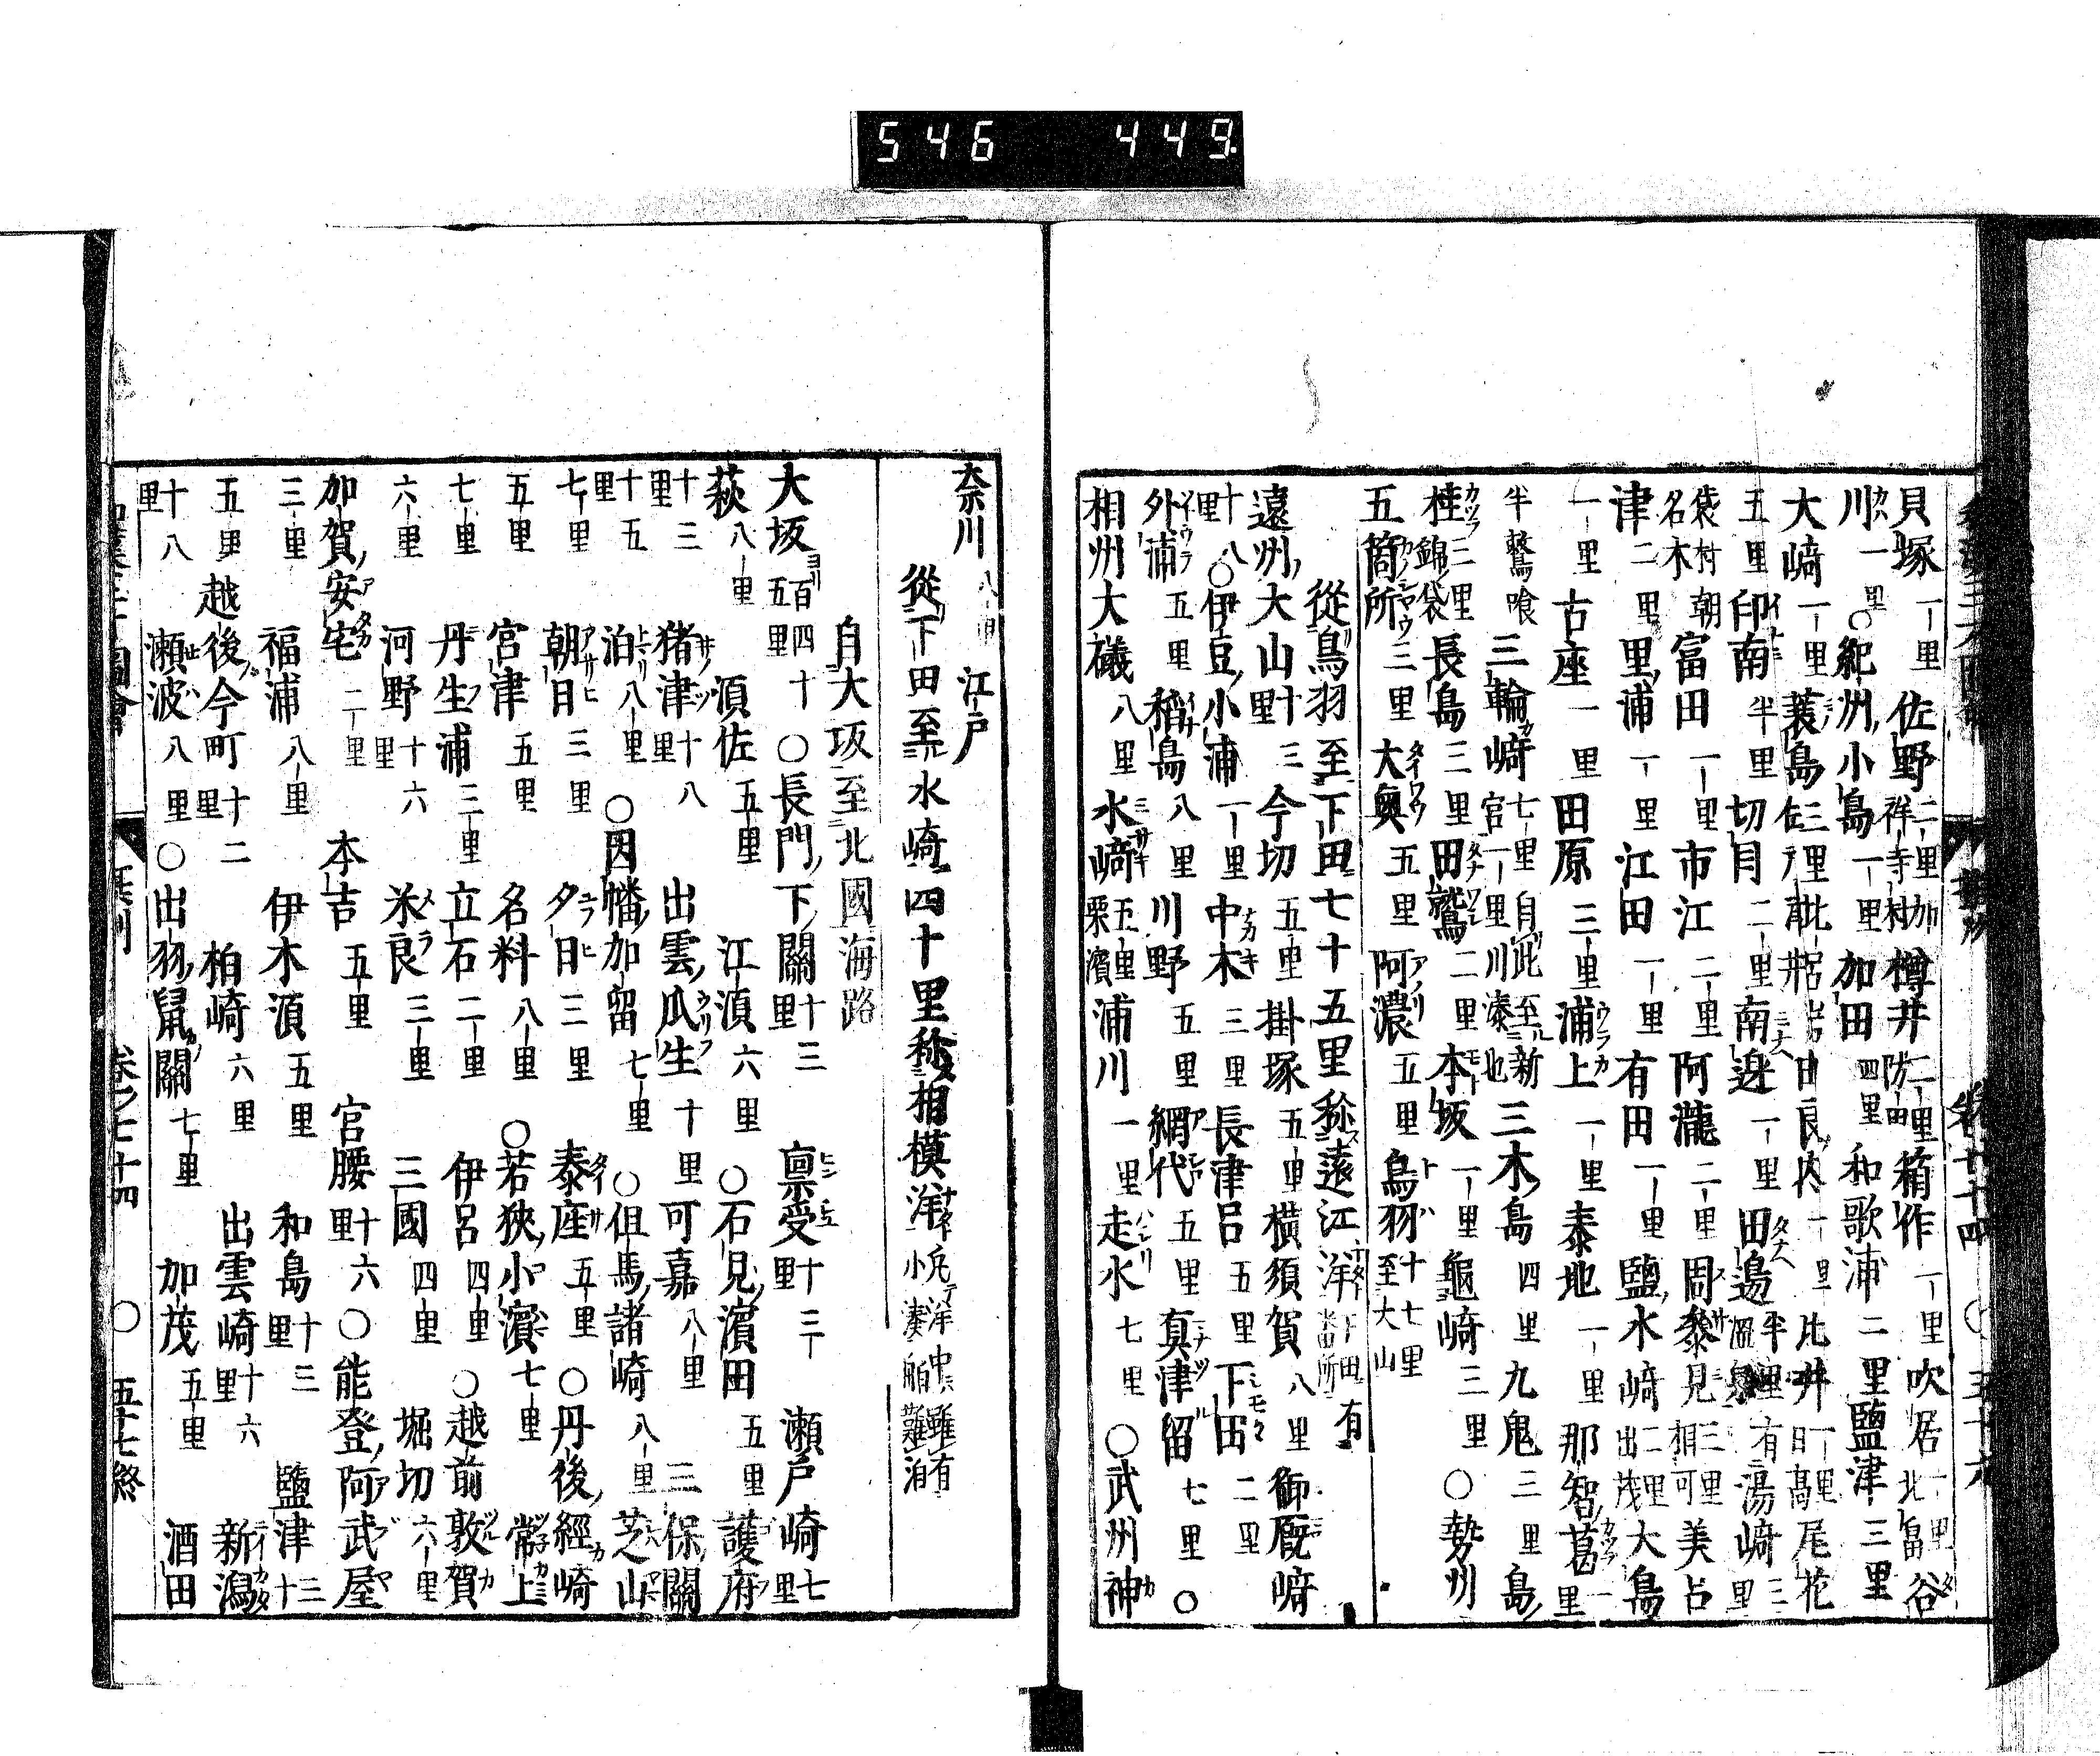 546 449
貝塚 一里 佐野 二里加祥寺村 樽井 二里 箱作 一里 吹居 一里 北畠 谷
川 一里 ○紀州小島 一里 加田 四里 和歌浦 二里 鹽津 三里
大﨑 一里 蓑島 三里 由良内 一里 比井 一里 日髙 尾花
五里 印南 半里 切目 二里 南邊 一里 田邉 半里 有 湯﨑 三里
袋村 朝名木 富田 一里 市江 二里 阿瀧 二里 周參見 三里 相可 美占
津 二里 里浦 一里 江田 一里 有田 一里 鹽水﨑 二里 出茂 大島
一里 古座 一里 田原 三里 浦上 一里 泰地 一里 那智葛 一里
半 鷲喰 三輪﨑 七里 自此至新宮一里川湊也 三木島 四里 九鬼 三里 島
桂 三里 錦袋 長島 三里 田鷲 二里 本坂 一里 龜﨑 三里 ○勢州
五箇所 三里 大奥 五里 阿濃 五里 鳥羽 十七里 至大山
從鳥羽至下田七十五里称遠江洋 下田 有
遠州大山 十三里 今切 五里 掛塚 五里 横須賀 八里 御厩﨑
十八里 ○伊豆小浦 一里 中木 三里 長津呂 五里 下田 二里
外浦 五里 稲島 八里 川野 五里 網代 五里 真津留 七里 ○
相州大礒 八里 水﨑 五里 栗濱 浦川 一里 走水 七里 ○武州神
奈川 八里 江戸
從下田至水﨑四十里称相模洋 凡洋中雖有小湊舶難泊
自大坂至北國海路
大坂 百四十五里 ○長門下關 十三里 禀受 十三里 瀬戸﨑 七里
萩 八里 須佐 五里 江湏 六里 ○石見濱田 五里 護府
十三里 猪津 十八里 出雲瓜生 十里 可嘉 八里 三保關
十五里 泊 八里 ○因幡加留 七里 ○但馬諸﨑 八里 芝山
七里 朝日 三里 夕日 三里 泰座 五里 ○丹後經﨑
五里 宮津 五里 名料 八里 ○若狹小濱 七里 常上
七里 丹生浦 三里 立石 二里 伊呂 四里 ○越前敦賀
六里 河野 十六里 米良 三里 三國 四里 堀切 六里
加賀安宅 二里 本吉 五里 宮腰 十六里 ○能登阿武屋
三里 福浦 八里 伊木湏 五里 和島 十三里 鹽津 三十
五里 越後今町 十二里 柏﨑 六里 出雲﨑 十六里 新潟
十八里 瀬波 八里 ○出羽鼠關 七里 加茂 五里 酒田
卷之七十四 ○ 五十七終